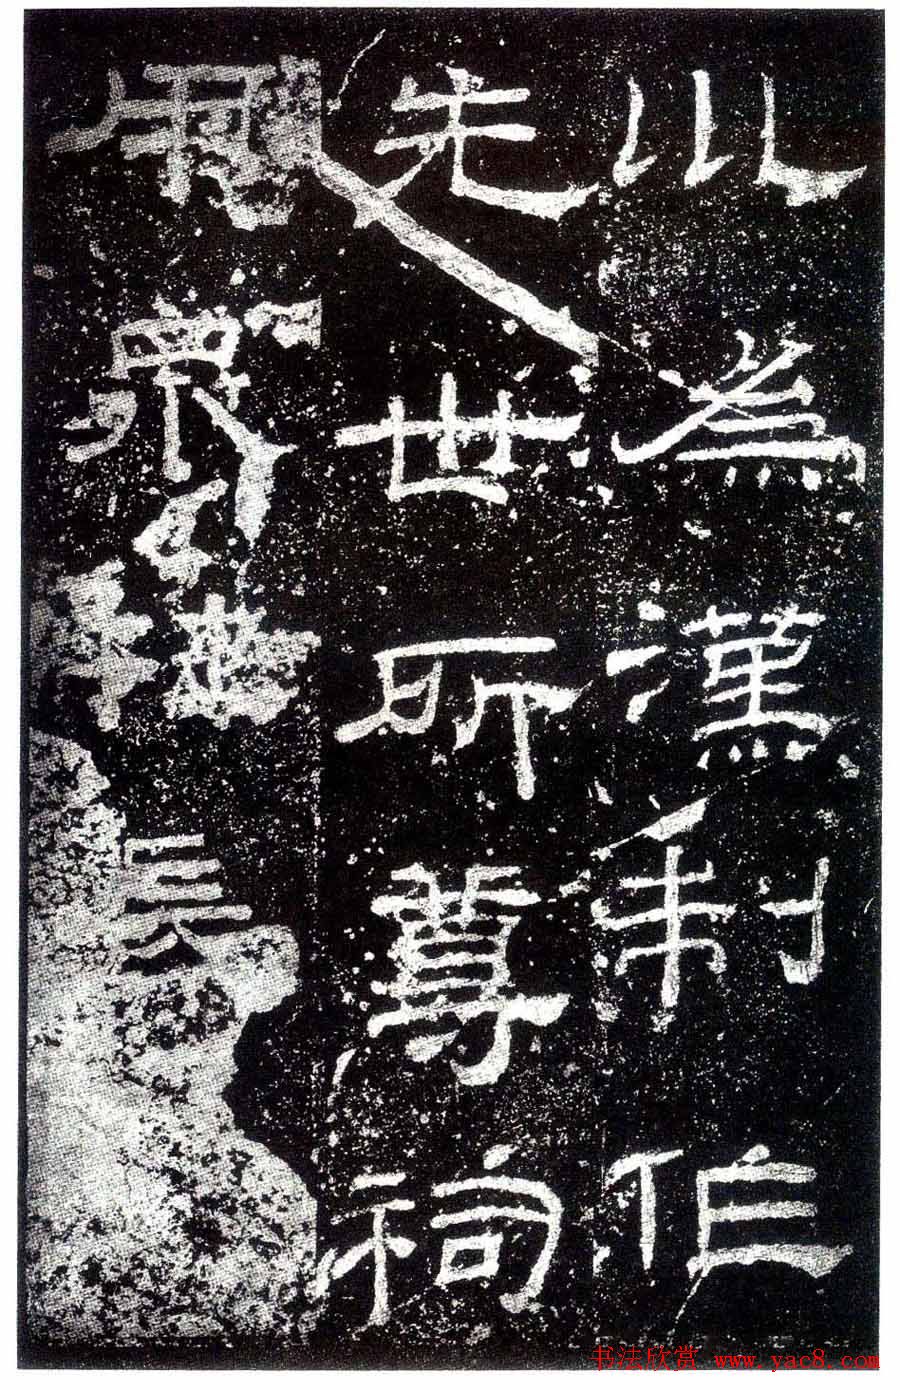 川為漢制作
先世所尊祠
用眾牲長
书法欣赏 www.yac8.com